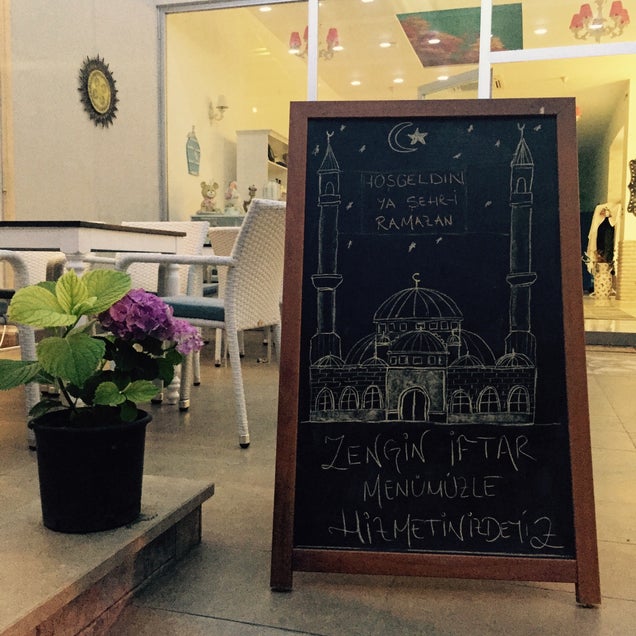 HOŞGELDİN
YA ŞEHR-İ
RAMAZAN
ZENGİN İFTAR
MENÜMÜZLE
HİZMETİNİZDEYİZ